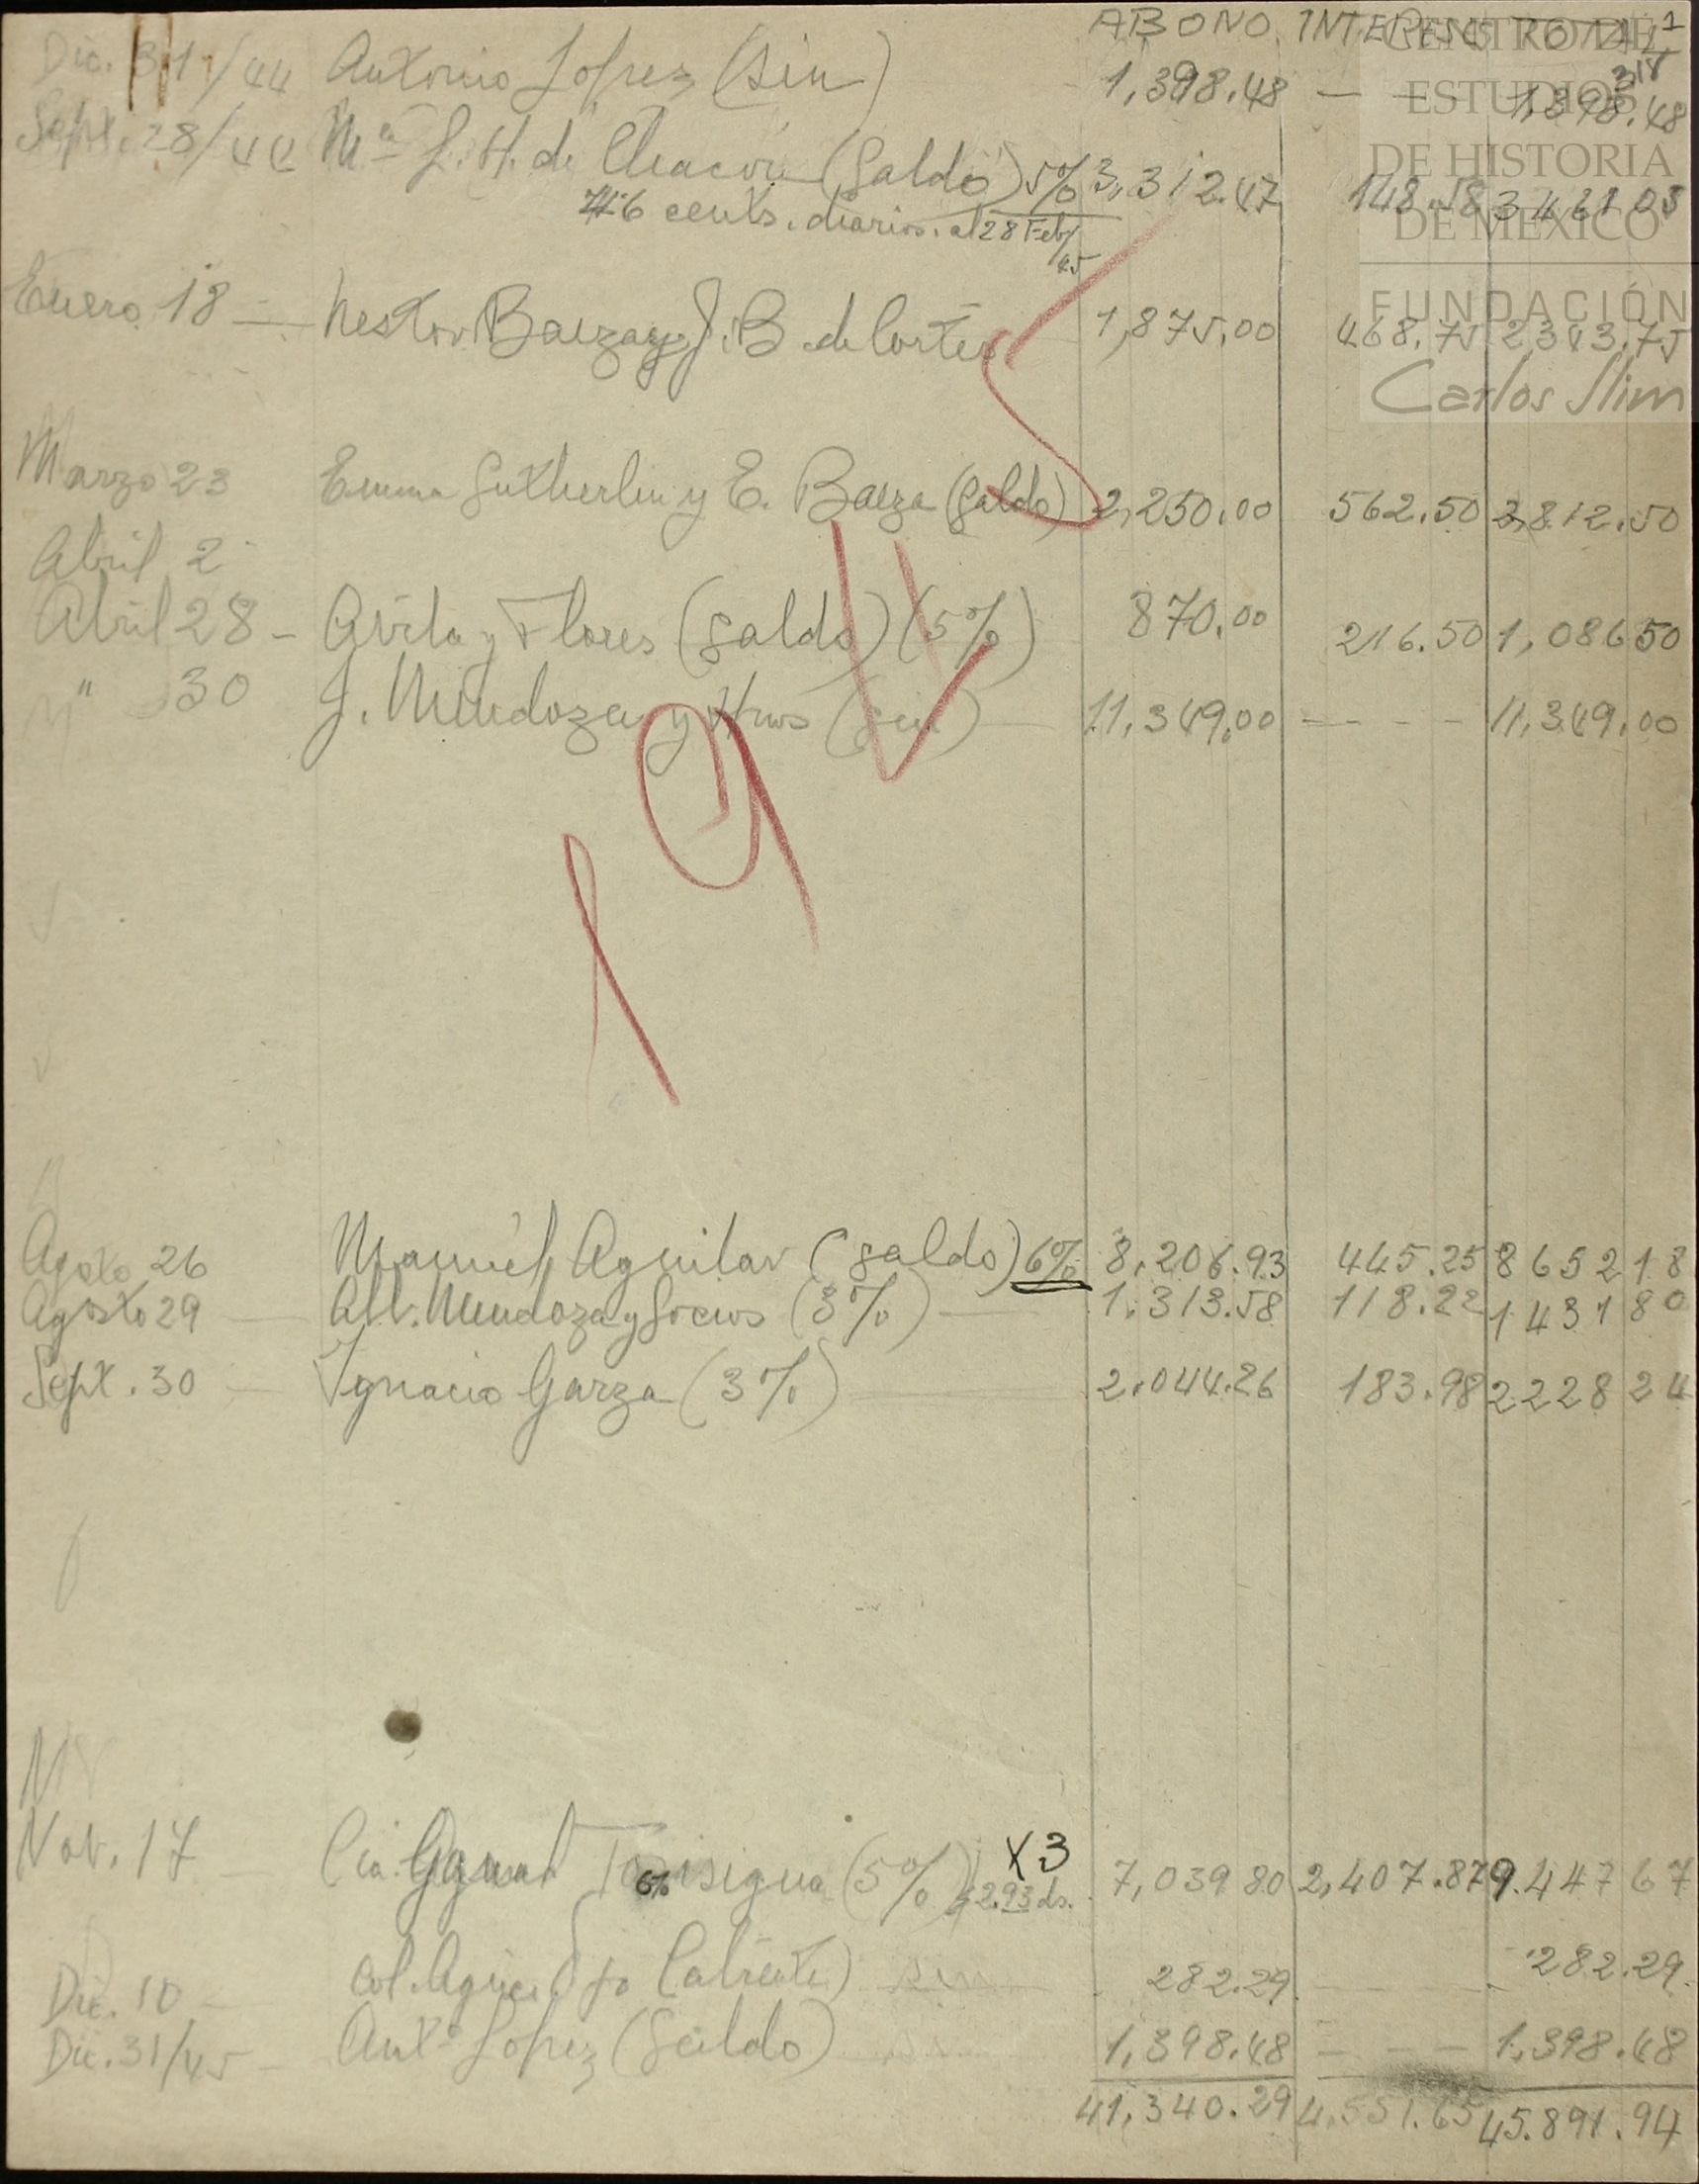 ABONO. INTERESES TOTAL 1
318
Dic. 31/44 Antonio Lopez (sin) 1,398.48 — — 1,398.48
Sept. 28/44 Mª L. H. de Chacón (Saldo) 5% 3,312.47 148.58 3461 05
46 cents. diarios. al 28 Feb/45
Enero 18 — Nestor Baeza y J. B. de Cortés 1,875.00 468.75 2343.75
Marzo 23 Emma Sutherlin y E. Baeza (Saldo) 2,250.00 562.50 2,812.50
Abril 2
Abril 28 - Avila y Flores (saldo) (5%) 870.00 216.50 1,086 50
" 30 J. Mendoza y Hnos (sin) 11,349.00 - - - - 11,349.00
1945
Agosto 26 Manuel Aguilar (saldo) 6% 8,206.93 445.25 8652 18
Agosto 29 Alb. Mendoza y Socios (3%) 1,313.58 118.22 1431 80
Sept. 30 Ignacio Garza (3%) 2,044.26 183.98 2228 24
Nov. 17 Cia. (5%) 2.93 ds. 7,039 80 2,407.87 9.447 67
X3
6%
Dic. 10 - Col. Agríc. Ojo Caliente) sin 282.29 282.29
Dic. 31/45 - Antº Lopez (Saldo) 1,398.48 - - - 1,398.48
41,340.29 4,551.65 45.891.94
CENTRO DE
ESTUDIOS
DE HISTORIA
DE MÉXICO
FUNDACIÓN
Carlos Slim